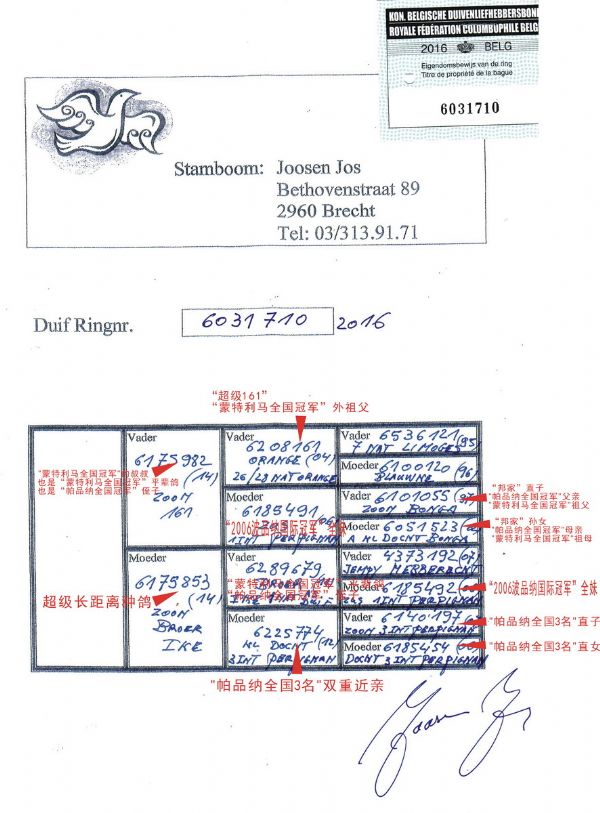 KON. BELGISCHE DUIVENLIEFHEBBERSBOND
ROYALE FÉDÉRATION COLUMBOPHILE BELG
2016 BELG
Eigendomsbewijs van de ring
Titre de propriété de la bague
6031710
Stamboom: Joosen Jos
Bethovenstraat 89
2960 Brecht
Tel: 03/313.91.71
Duif Ringnr. 6031710 2016
“超级161”
“蒙特利马全国冠军”外祖父
Vader
6175982
(14)
ZOON
161
"蒙特利马全国冠军"的叔叔
也是“蒙特利马全国冠军”平辈鸽
也是“帕品纳全国冠军”侄子
Moeder
6175853
(14)
ZOON
BROER
IKE
超级长距离种鸽
Vader
6208161
ORANGE (04)
26/LB NAT ORANGE
Moeder
6185491
1 INT PERPIGNAN
“2006波品纳国际冠军”全妹
Vader
6289679
Moeder
6225774
NL DOCHT (12)
3 INT PERPIGNAN
"帕品纳全国3名"双重近亲
Vader 6536121 (95)
7 NAT LIMOGES
Moeder 6100120 (96)
BLAUWINE
Vader 6101055 (97)
ZOON BONGA
“邦家”直子
"帕品纳全国冠军"父亲
"蒙特利马全国冠军"祖父
Moeder 6051523
A NL DOCHT BONGA
“邦家”孙女
"帕品纳全国冠军"母亲
"蒙特利马全国冠军"祖母
Vader 4373192 (07)
JEMPY MEBBERECHT
Moeder 6185492
1 INT PERPIGNAN
“2006波品纳国际冠军”全妹
Vader 6140197
ZOON 3 INT PERPIGNAN
"帕品纳全国3名"直子
Moeder 6185454
DOCHT 3 INT PERPIGNAN
"帕品纳全国3名"直女